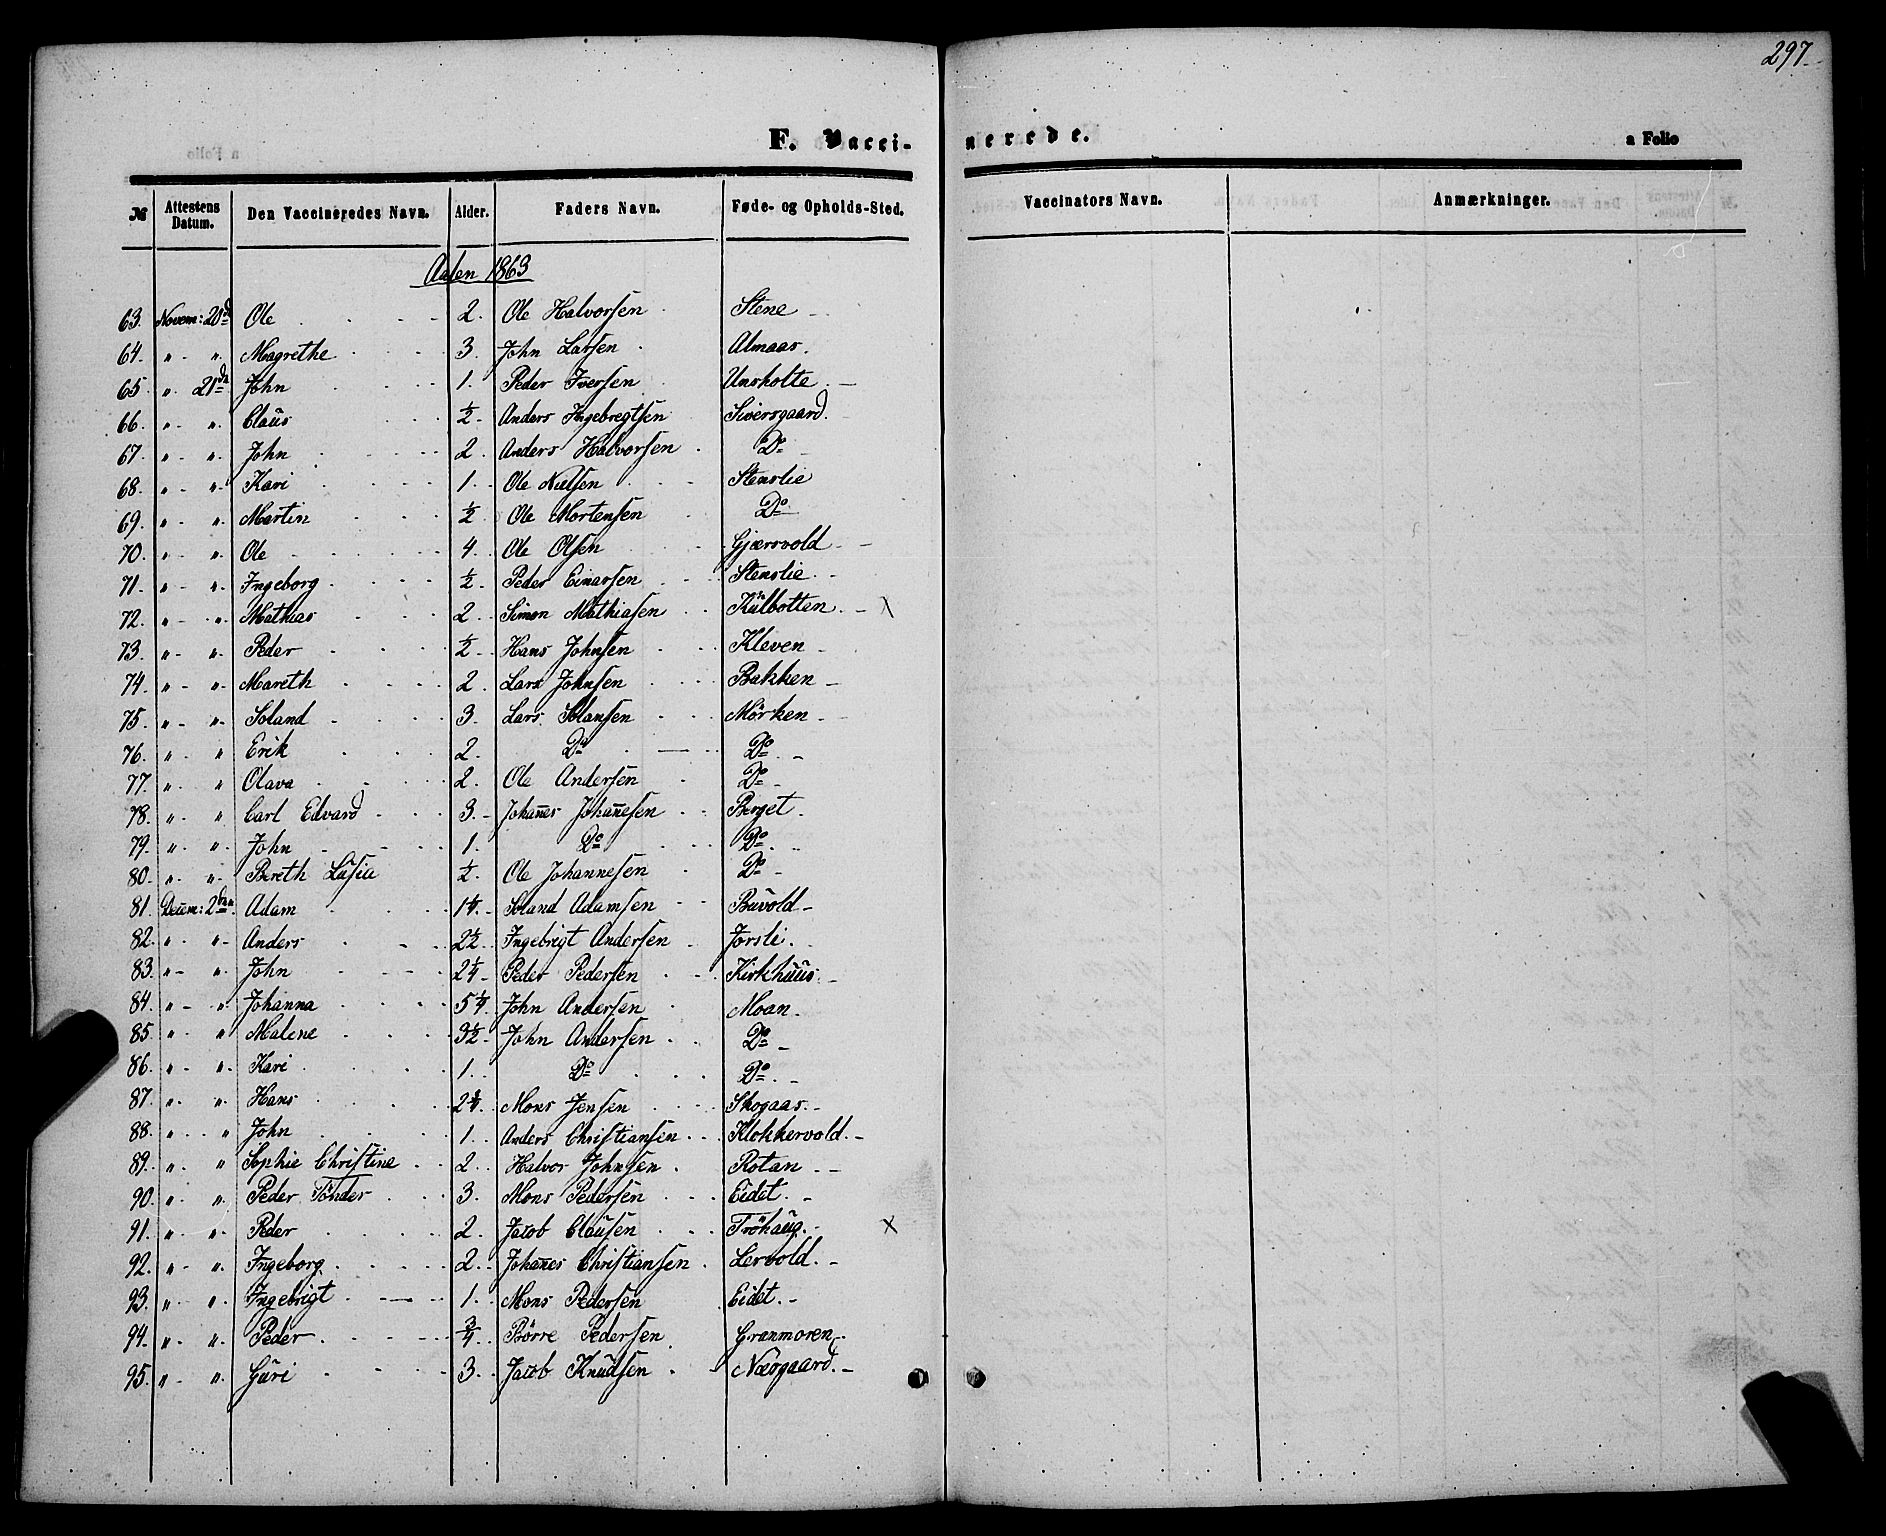 297.
F. Vacci-
nerede.
a Folio
№ Attestens Datum. Den Vaccineredes Navn. Alder. Faders Navn. Føde- og Opholds-Sted. Vaccinators Navn. Anmærkninger.
Aalen 1863
63. Novem: 20de Ole 2. Ole Halvorsen Stene
64. " " Magrethe 3. John Larsen Almaas.
65. " 21de John 1. Peder Iversen Unsholte
66. " " Claus ½ Anders Ingebregtsen Siversgaard.
67. " " John 2. Anders Halvorsen Do
68. " " Kari 1. Ole Nilsen Stenslie
69. " " Martin ½ Ole Mortensen Do
70. " " Ole 4. Ole Olsen Gjersvold
71. " " Ingeborg ½ Peder Einarsen Stenslie
72. " " Mathias 2. Simon Mathiasen Kulbotten X
73. " " Peder ½ Hans Johnsen Kleven
74. " " Mareth 2. Lars Johnsen Bakken
75. " " Esland 3. Lars Mörken
76. " " Erik 2. Do Do
77. " " Olava 2. Ole Andersen Do
78. " " Carl Edvard 3. Johannes Johannesen Berget.
79. " " John 1. Do Do
80. " " Bereth Lusie ½. Ole Johannesen Do
81. Decem: 2den Adam 1¼. Adamsen Buvold
82. " " Anders 2½ Ingebrigt Andersen Jorsli.
83. " " John 2¼ Peder Pedersen Kirkhuus.
84. " " Johanna 5¼ John Andersen Moan.
85. " " Malene 3½ John Andersen Do
86. " " Kari 1. Do Do
87. " " Hans 2¼. Mons Jensen Skogaas.
88. " " John 1. Anders Christiansen Klokkervold.
89. " " Sophie Christine 2. Halvor Johnsen Rotan
90. " " Peder Tönder 3. Mons Pedersen Eidet.
91. " " Peder 2. Jacob Clausen Tröhaug. X
92. " " Ingeborg 2. Johannes Christiansen Lervold.
93. " " Ingebrigt 1. Mons Pedersen Eidet.
94. " " Peder ¾ Börre Pedersen Granmoren
95. " " Guri 3. Jacob Knudsen Næsgaard.